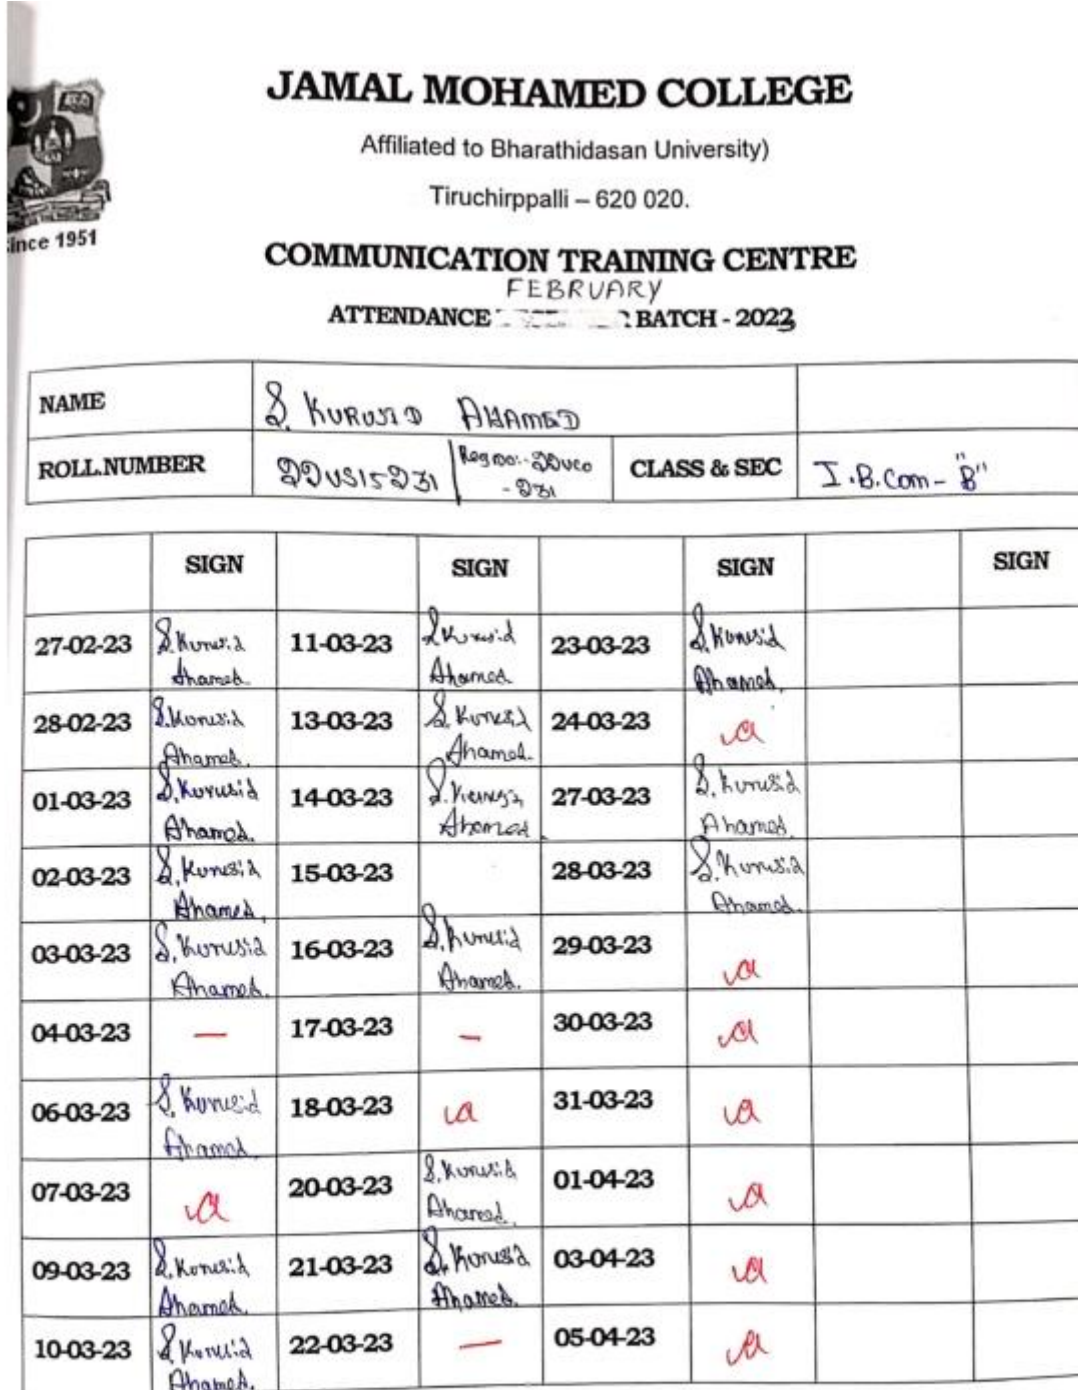 JAMAL MOHAMED COLLEGE
Affiliated to Bharathidasan University)
Tiruchirppalli – 620 020.
since 1951
COMMUNICATION TRAINING CENTRE
FEBRUARY
ATTENDANCE BATCH - 2023
NAME S. KURUSID AHAMED
ROLL.NUMBER 22US15231 Reg no:- 22UCO - 231 CLASS & SEC I.B.Com - "B"
SIGN SIGN SIGN SIGN
27-02-23 S.Kurusid Ahamed. 11-03-23 S.Kurusid Ahamed. 23-03-23 S.Kurusid Ahamed.
28-02-23 S.Kurusid Ahamed. 13-03-23 S.Kurusid Ahamed. 24-03-23 a
01-03-23 S.Kurusid Ahamed. 14-03-23 S.Kurusid Ahamed. 27-03-23 S.Kurusid Ahamed.
02-03-23 S.Kurusid Ahamed. 15-03-23 28-03-23 S.Kurusid Ahamed.
03-03-23 S.Kurusid Ahamed. 16-03-23 S.Kurusid Ahamed. 29-03-23 a
04-03-23 — 17-03-23 — 30-03-23 a
06-03-23 S.Kurusid Ahamed. 18-03-23 a 31-03-23 a
07-03-23 a 20-03-23 S.Kurusid Ahamed. 01-04-23 a
09-03-23 S.Kurusid Ahamed. 21-03-23 S.Kurusid Ahamed. 03-04-23 a
10-03-23 S.Kurusid Ahamed. 22-03-23 — 05-04-23 a